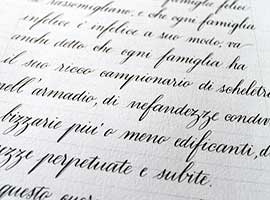 rassomigliano, e che ogni famiglia
infelice è infelice a suo modo, va
anche detto che ogni famiglia ha
il suo ricco campionario di scheletri
nell'armadio, di nefandezze condiv
bizzarie piu' o meno edificanti, d
zze perpetuate e subite.
questo